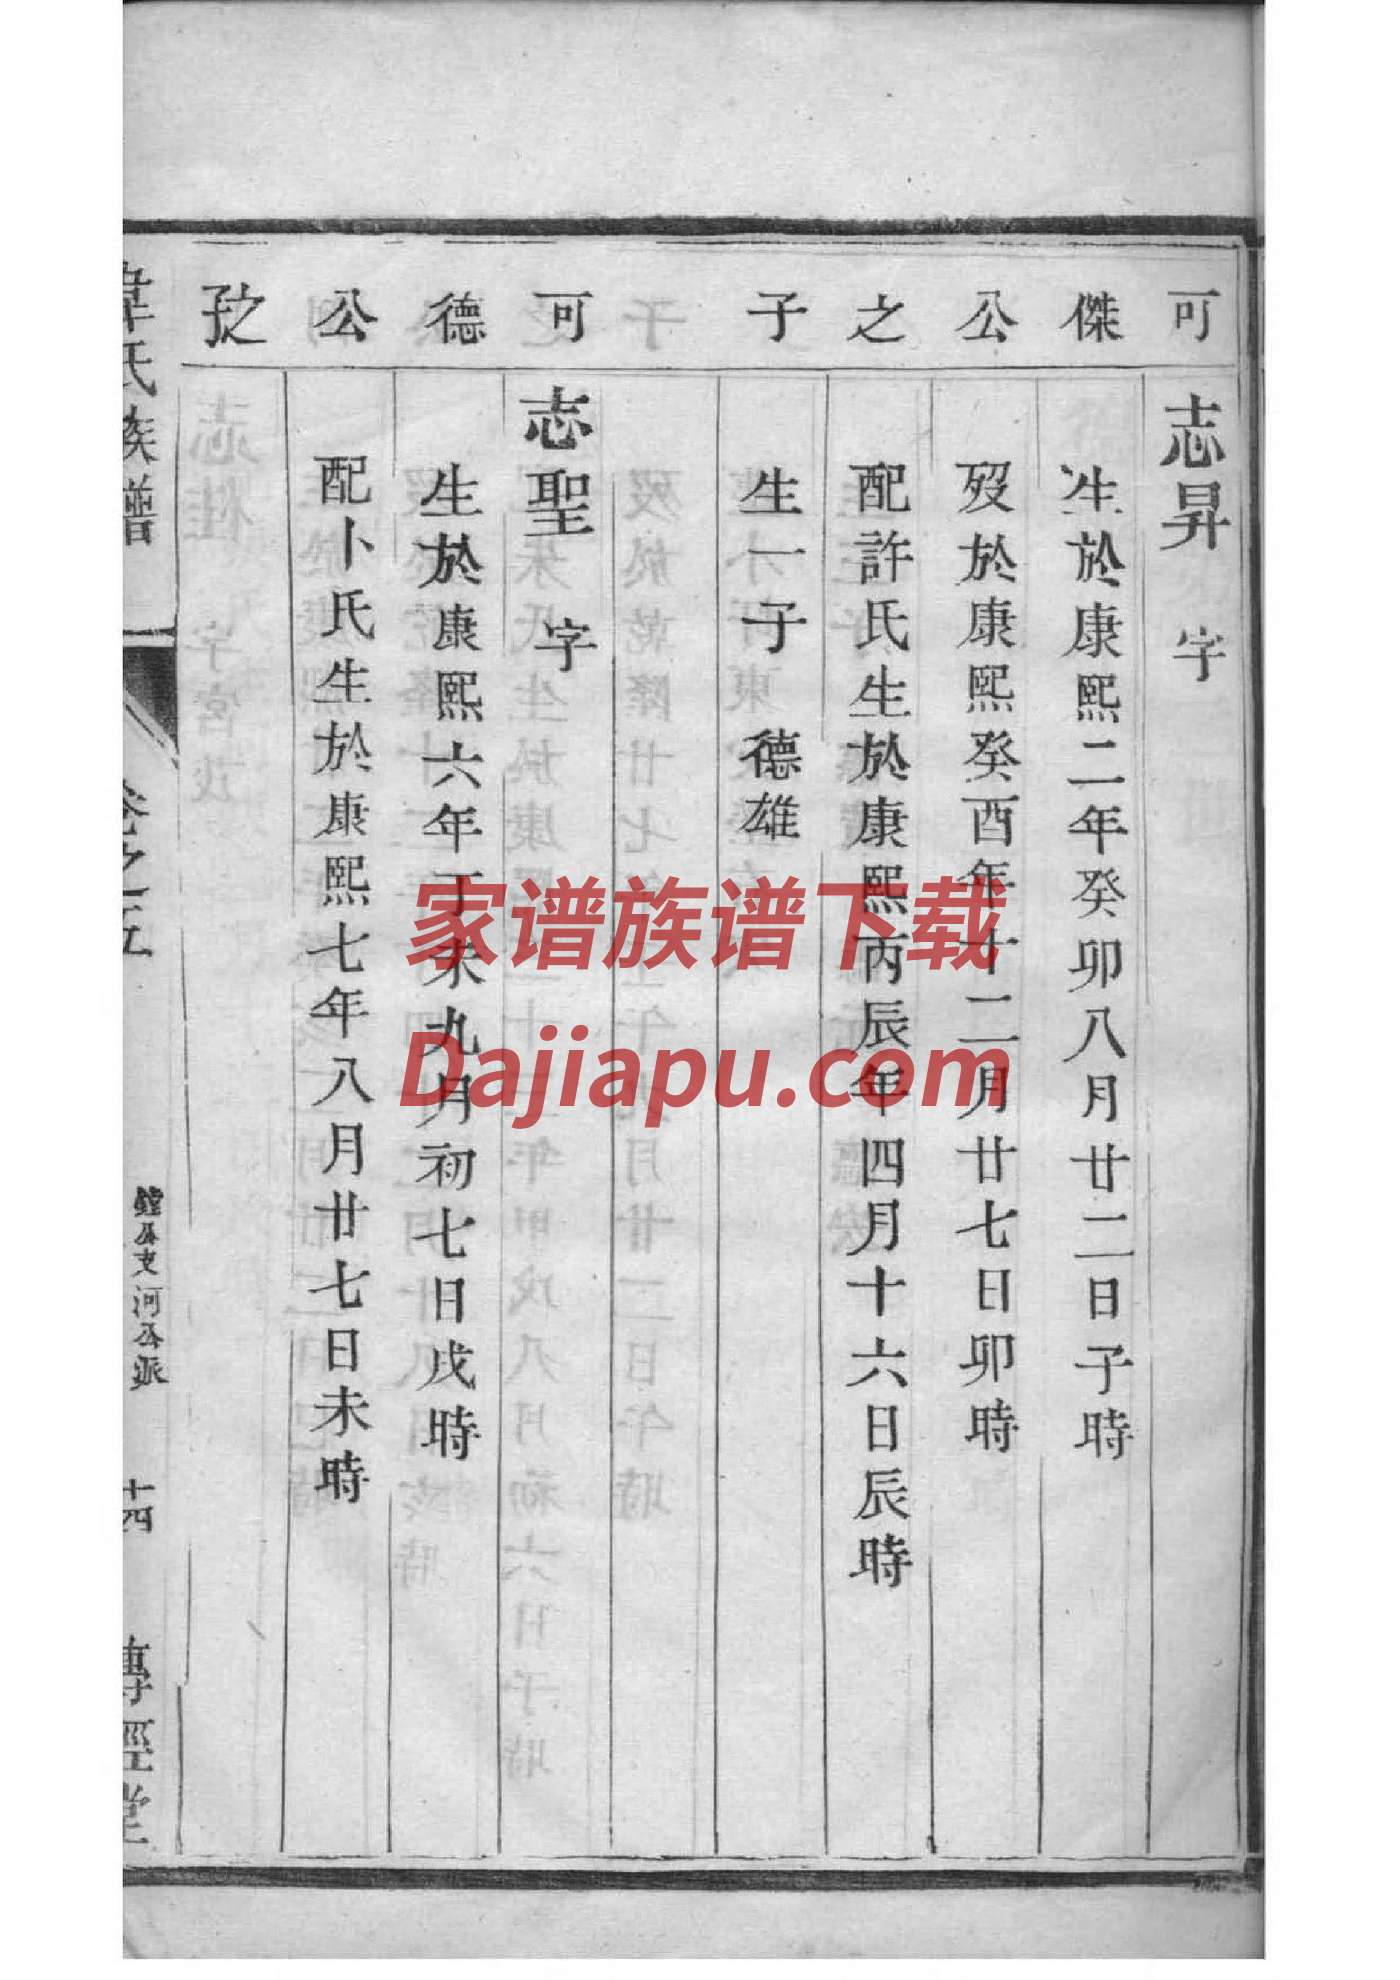 可傑公之子
志昇　字
生於康熙二年癸卯八月廿二日子時
歿於康熙癸酉年十二月廿七日卯時
配許氏生於康熙丙辰年四月十六日辰時
生一子　德雄
可德公之
志聖　字
生於康熙六年丁未九月初七日戌時
配卜氏生於康熙七年八月廿七日未時
韋氏族譜
卷之五
鏜公支河公派
十四
傳經堂
家谱族谱下载
Dajiapu.com